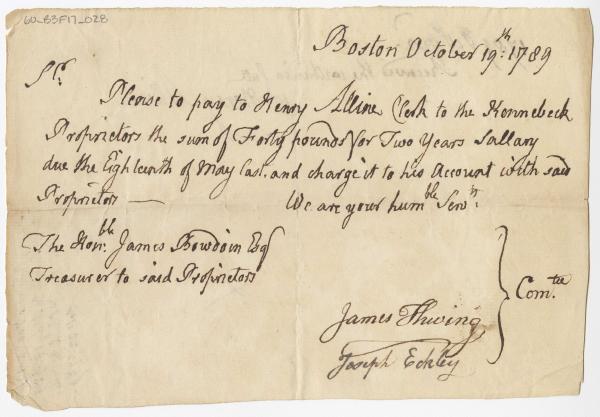 60_B3F17_028
Boston October 19th: 1789
Sr.
Please to pay to Henry Alline Clerk to the Kennebeck
Proprietors the sum of Forty pounds for Two Years Sallary
due the Eighteenth of May Last. and charge it to his Account with said
Proprietors — We are your humble Servts.
The Honble. James Bowdoin Esq
Treasurer to said Proprietors
James Thwing
Joseph Eckley
Comtee